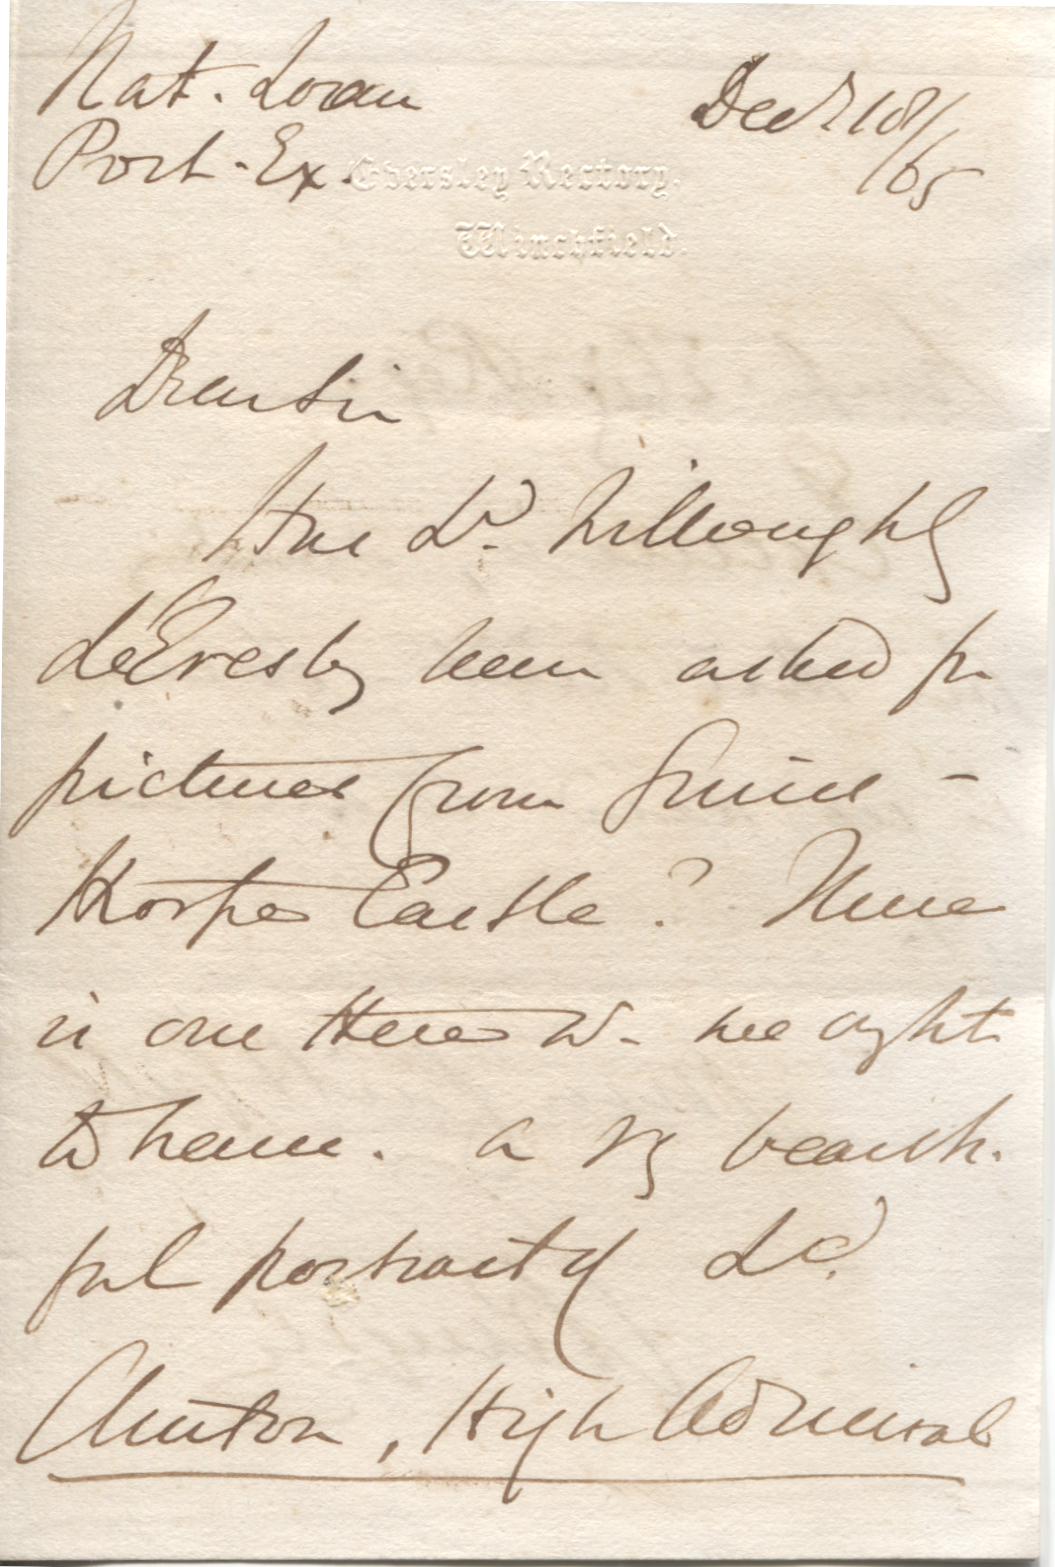 Nat. Loan
Port. Ex.
Decr. 18/65
Eversley Rectory,
Winchfield.
Dear Sir
Has Ld. Willoughby
de Eresby been asked for
pictures from Grims-
thorpe Castle? There
is one there wh. we ought
to have. a vy beauti-
ful portrait of Ld.
Clinton, High Admiral